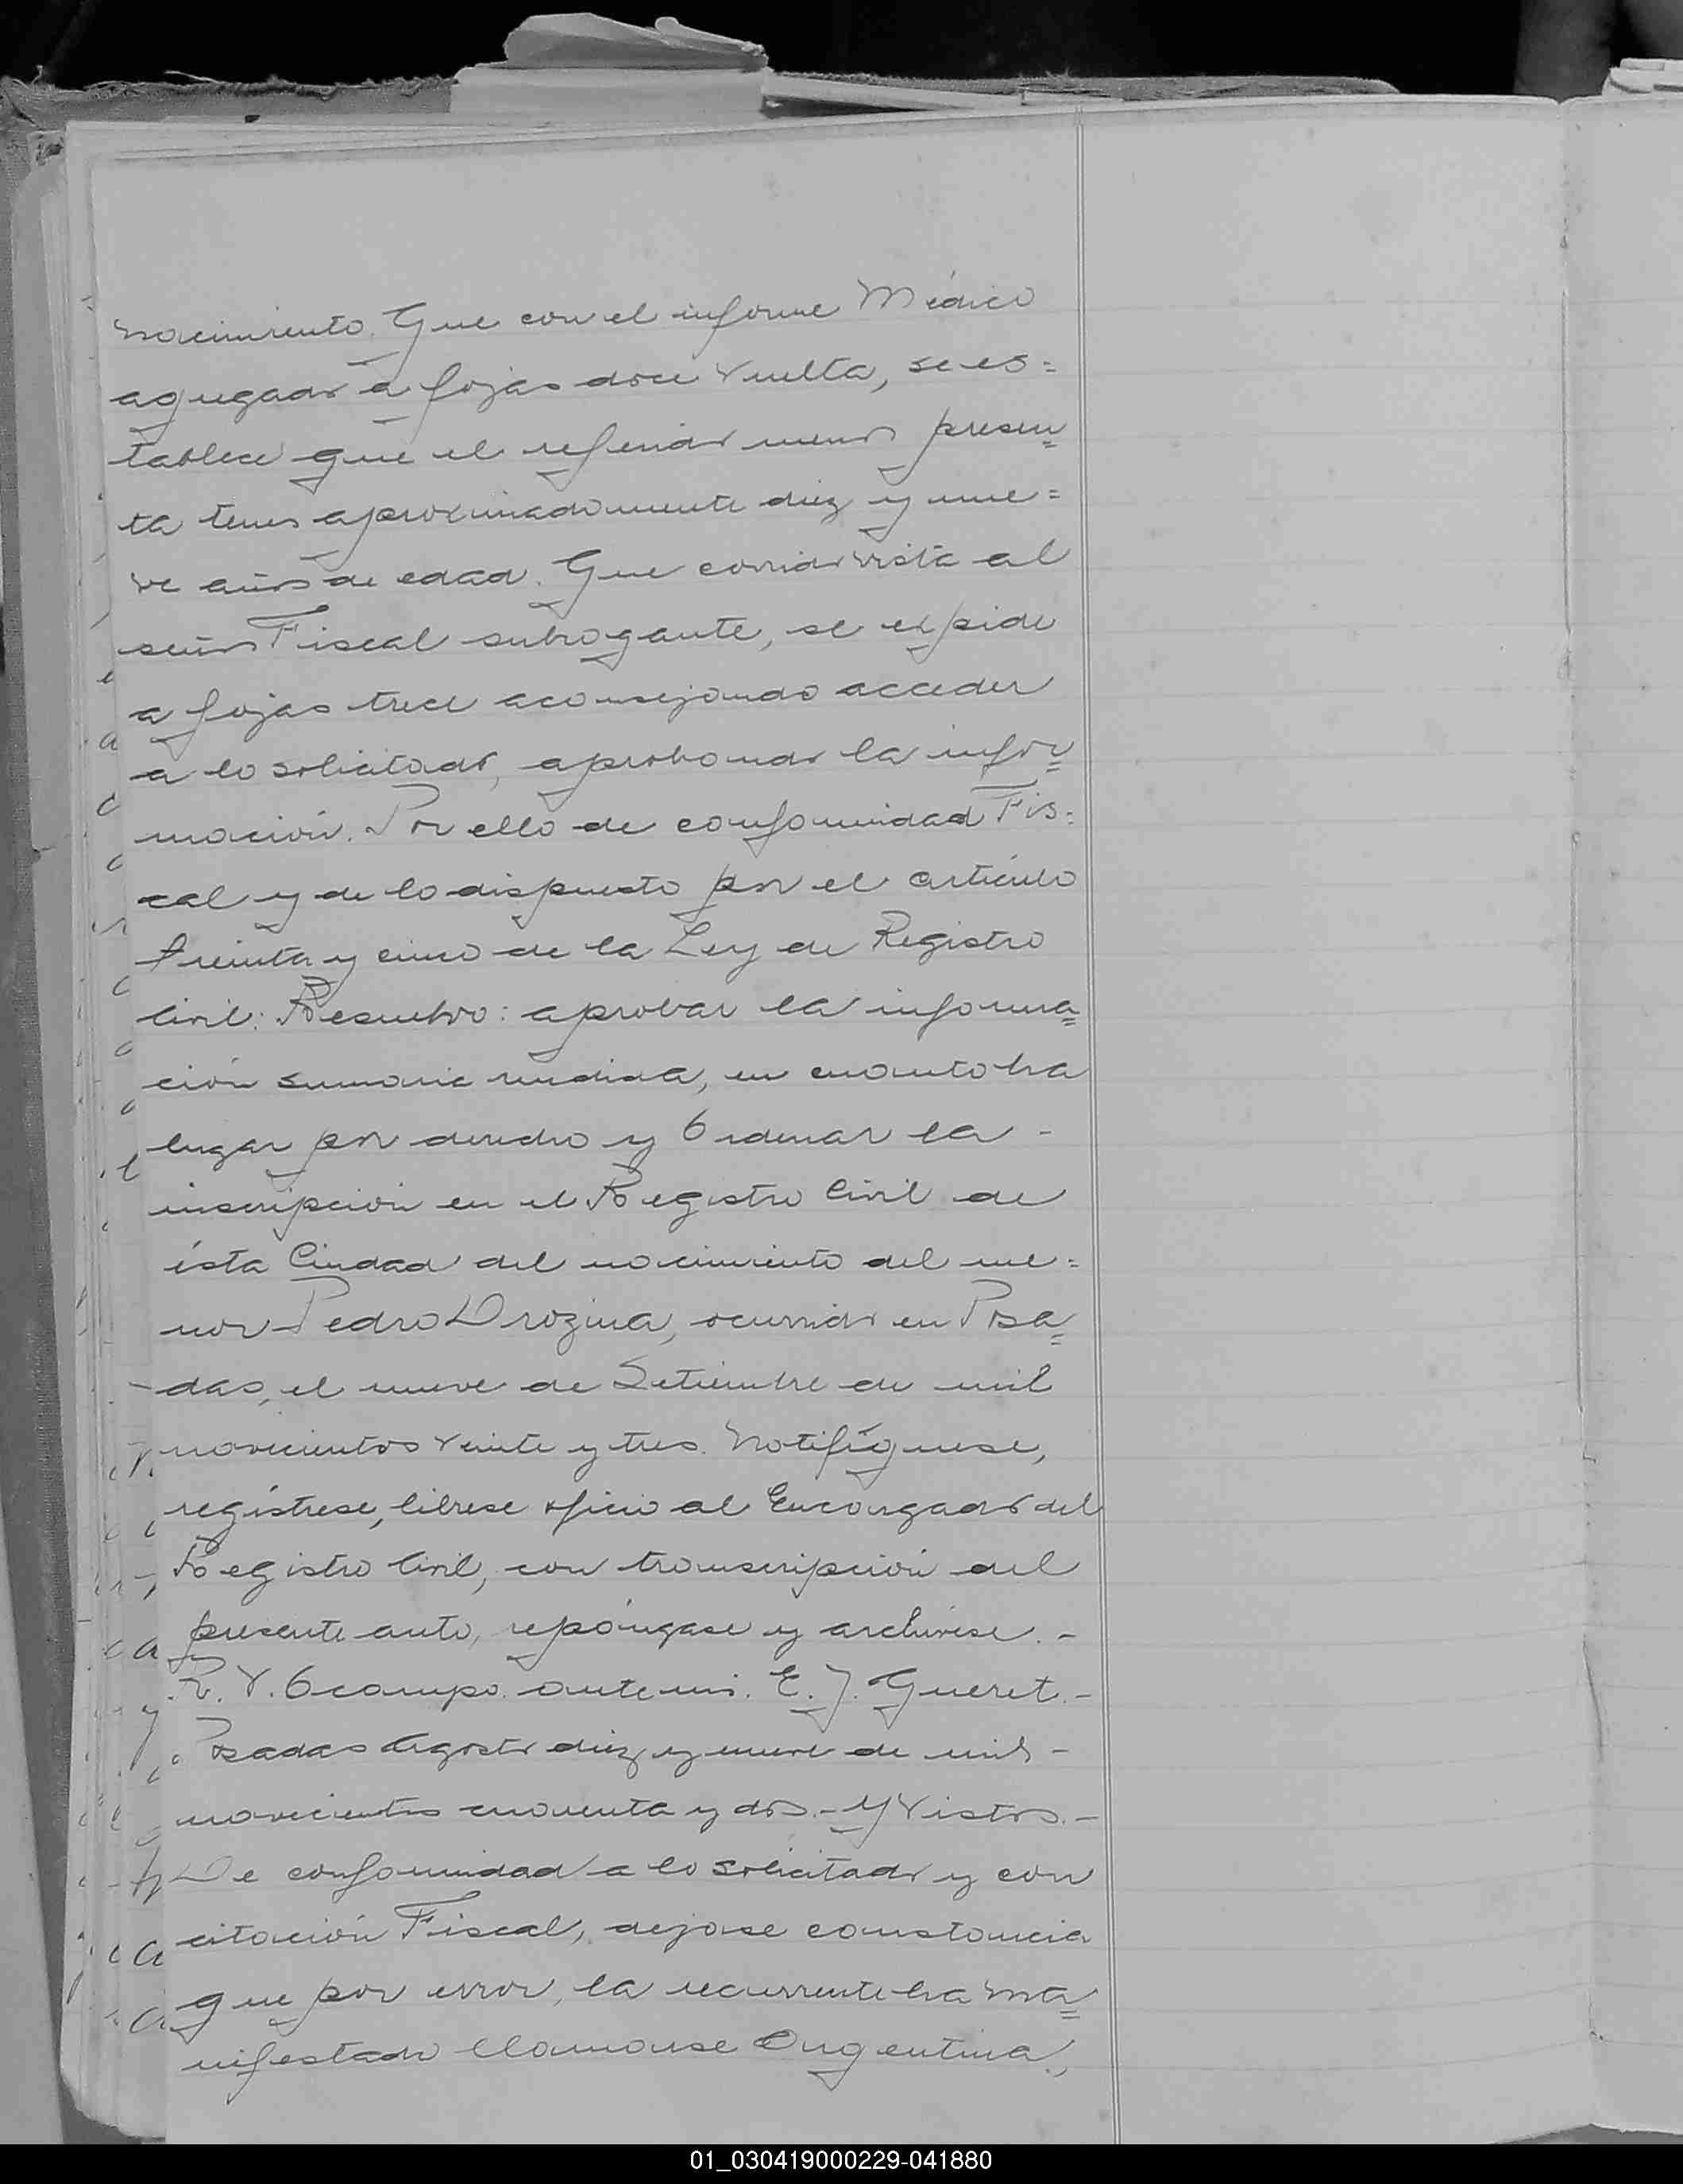 nacimiento. Que con el informe Médico
agregado a fojas doce vuelta, se es=
tablece que el referido menor presen=
ta tener aproximadamente diez y nue=
ve años de edad. Que corrido vista al
señor Fiscal subrogante, se expide
a fojas trece aconsejando acceder
a lo solicitado, aprobando la infor=
mación. Por ello de conformidad Fis=
cal y de lo dispuesto por el artículo
treinta y cinco de la Ley de Registro
Civil: Resuelvo: aprobar la informa=
ción sumaria rendida, en cuanto ha
lugar por derecho y Ordenar la -
inscripción en el Registro Civil de
ésta Ciudad del nacimiento del me=
nor Pedro Drozina, ocurrido en Posa=
das, el nueve de Setiembre de mil
novecientos veinte y tres. Notifíquese,
regístrese, líbrese oficio al Encargado del
Registro Civil, con transcripción del
presente auto, repóngase y archívese. -
R. V. Ocampo. ante mi. E. J. Gueret. -
Posadas Agosto diez y nueve de mil -
novecientos cuarenta y dos. - Y Vistos. -
De conformidad a lo solicitado y con
citación Fiscal, dejase constancia
que por error, la recurrente ha ma=
nifestado llamarse Argentina,
01_030419000229-041880